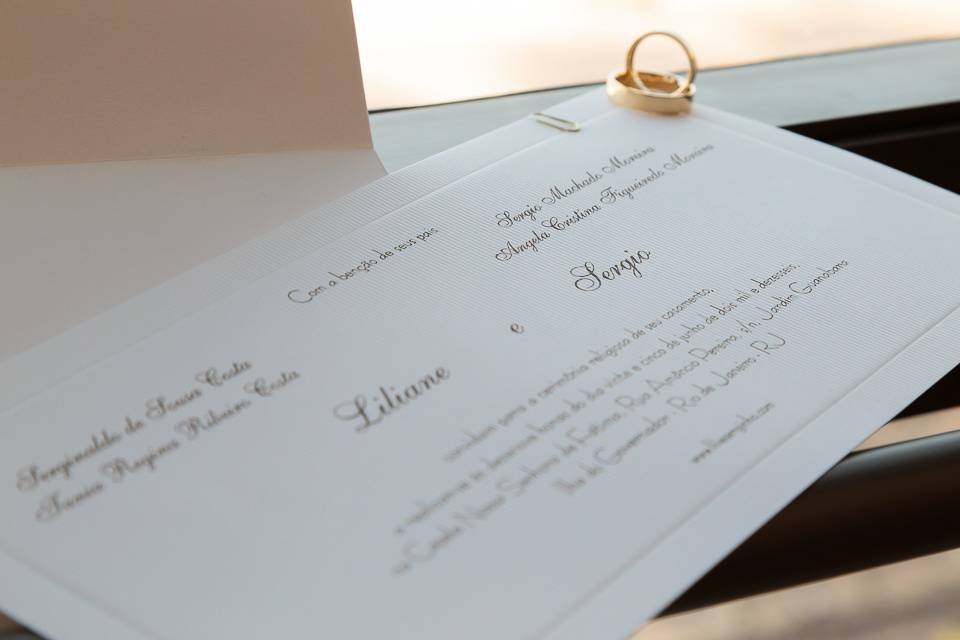 Com a benção de seus pais
Serginaldo de Sousa Costa
Tania Regina Ribeiro Costa
Sergio Machado Moreira
Angela Cristina Figueiredo Moreira
Liliane e Sergio
convidam para a cerimônia religiosa de seu casamento,
a realizar-se às dezenove horas do dia vinte e cinco de junho de dois mil e dezesseis,
na Capela Nossa Senhora de Fátima, Rua Amâncio Pereira, s/n, Jardim Guanabara
Ilha do Governador - Rio de Janeiro, RJ